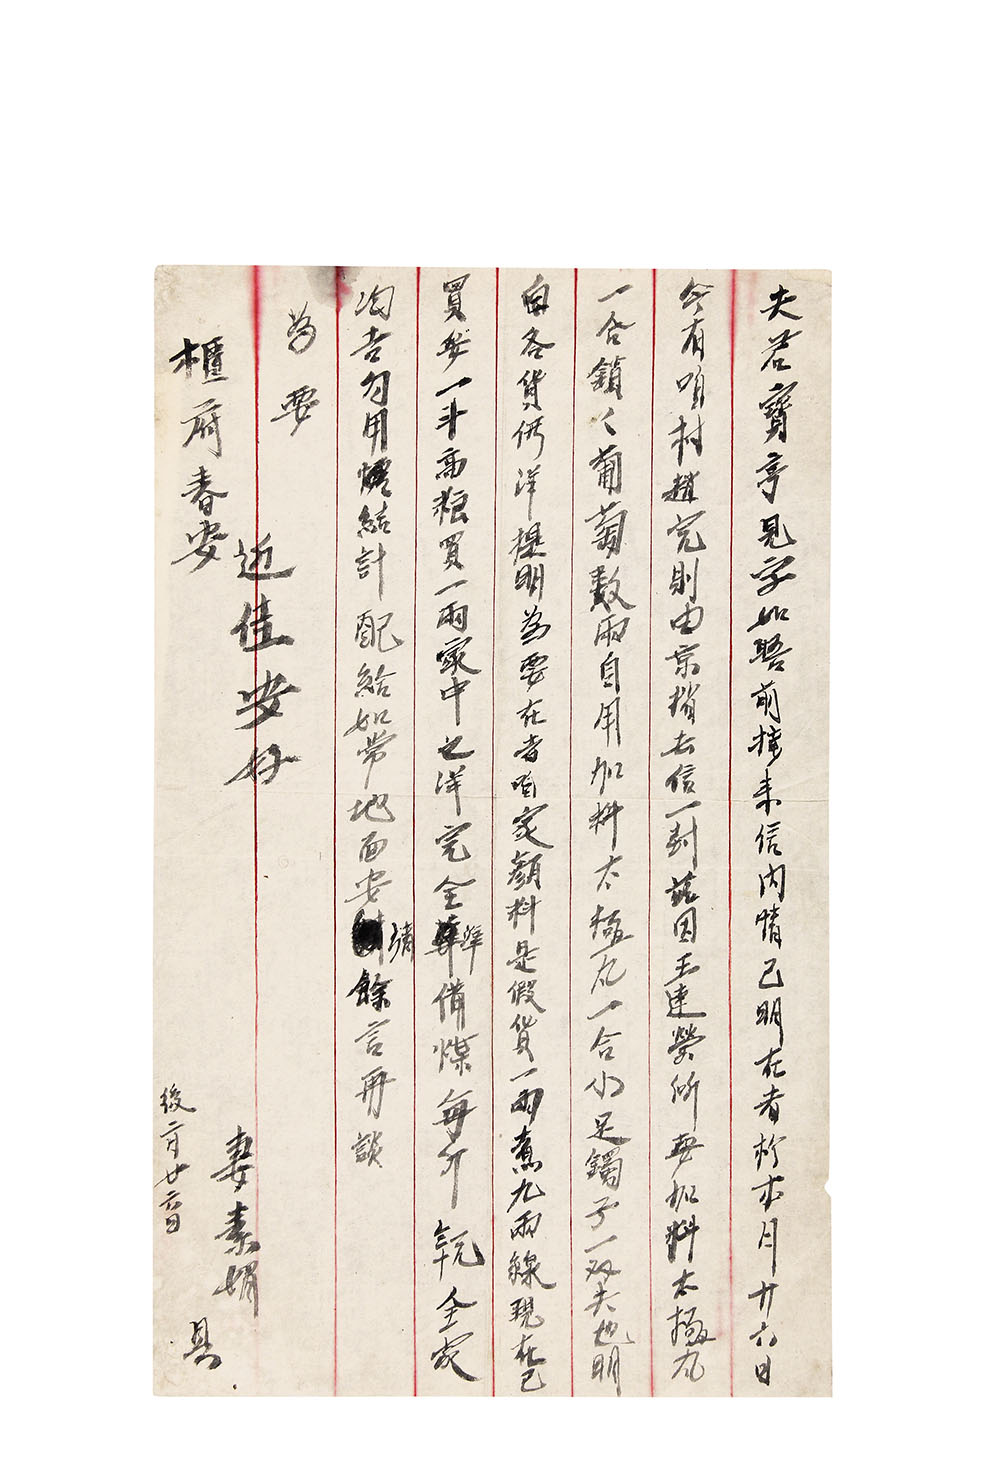 夫君寶亭見字如晤前接来信内情已明在者於本月廿六日
今有咱村趙完則由京捎去信一封茲因王連榮所要加料太極丸
一合鎖々葡萄数兩自用加料太極丸一合小足鐲子一双夫也明
白各貨價洋提明為要在者咱家顔料是假貨一兩煮九兩線現在已
買安一斗高粮買一兩家中之洋完全準備煤每斤元全家
均吉勿用惦結計配給如常地面安靖餘言再談
為要
近佳安好
櫃府春安
妻素娟具
後二月廿六日